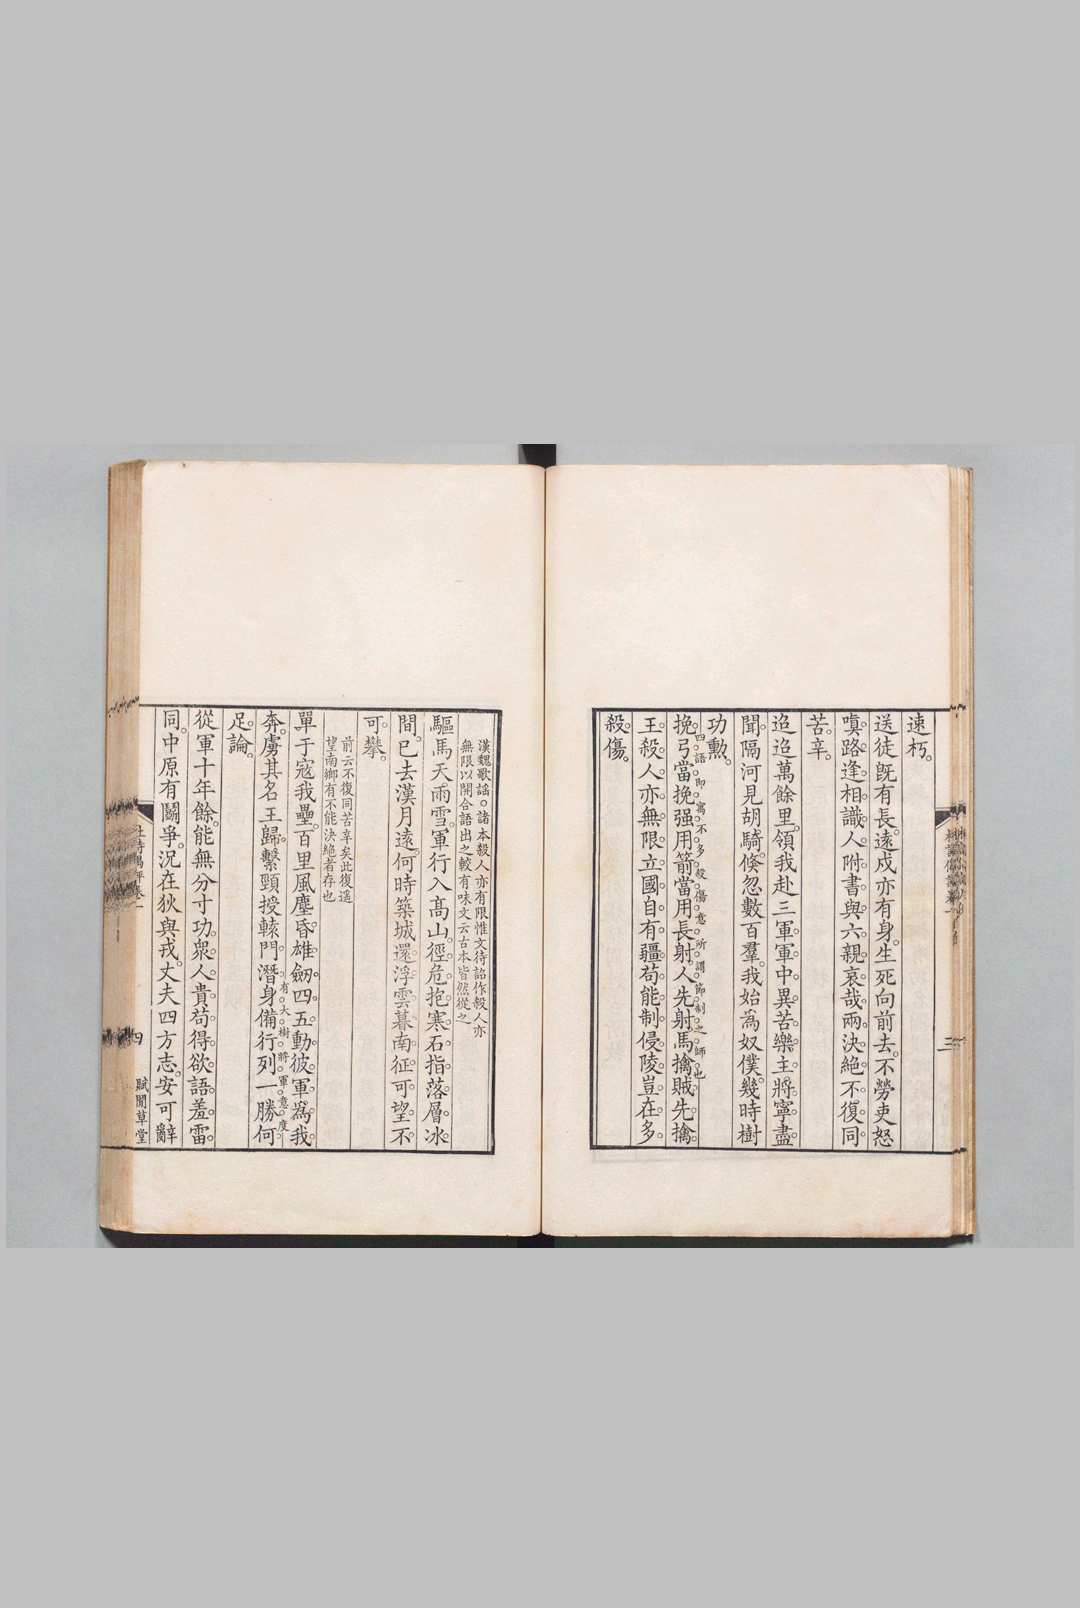 速朽。
送徒既有長。遠戍亦有身。生死向前去。不勞吏怒
嗔。路逢相識人。附書與六親。哀哉兩決絕。不復同
苦辛。
迢迢萬餘里。領我赴三軍。軍中異苦樂。主將寧盡
聞。隔河見胡騎。倏忽數百羣。我始為奴僕。幾時樹
功勲。
四語即寓不多殺傷意所謂節制之師也
挽弓當挽强。用箭當用長。射人先射馬。擒賊先擒
王。殺人亦無限。立國自有疆。苟能制侵陵。豈在多
殺傷。
漢魏歌謡。諸本殺人亦有限惟文待詔作殺人亦
無限以開合語出之較有味文云古本皆然從之
驅馬天雨雪。軍行入高山。徑危抱寒石。指落層冰
間。已去漢月遠。何時築城還。浮雲暮南征。可望不
可攀。
前云不復同苦辛矣此復遥
望南鄉有不能決絕者存也
單于寇我壘。百里風塵昏。雄劒四五動。彼軍為我
奔。虜其名王歸。繫頸授轅門。潛身備行列。一勝何
有大樹將軍意度
足論。
從軍十年餘。能無分寸功。衆人貴苟得。欲語羞雷
同。中原有鬭爭。況在狄與戎。丈夫四方志。安可辭
四
賦閒草堂
三